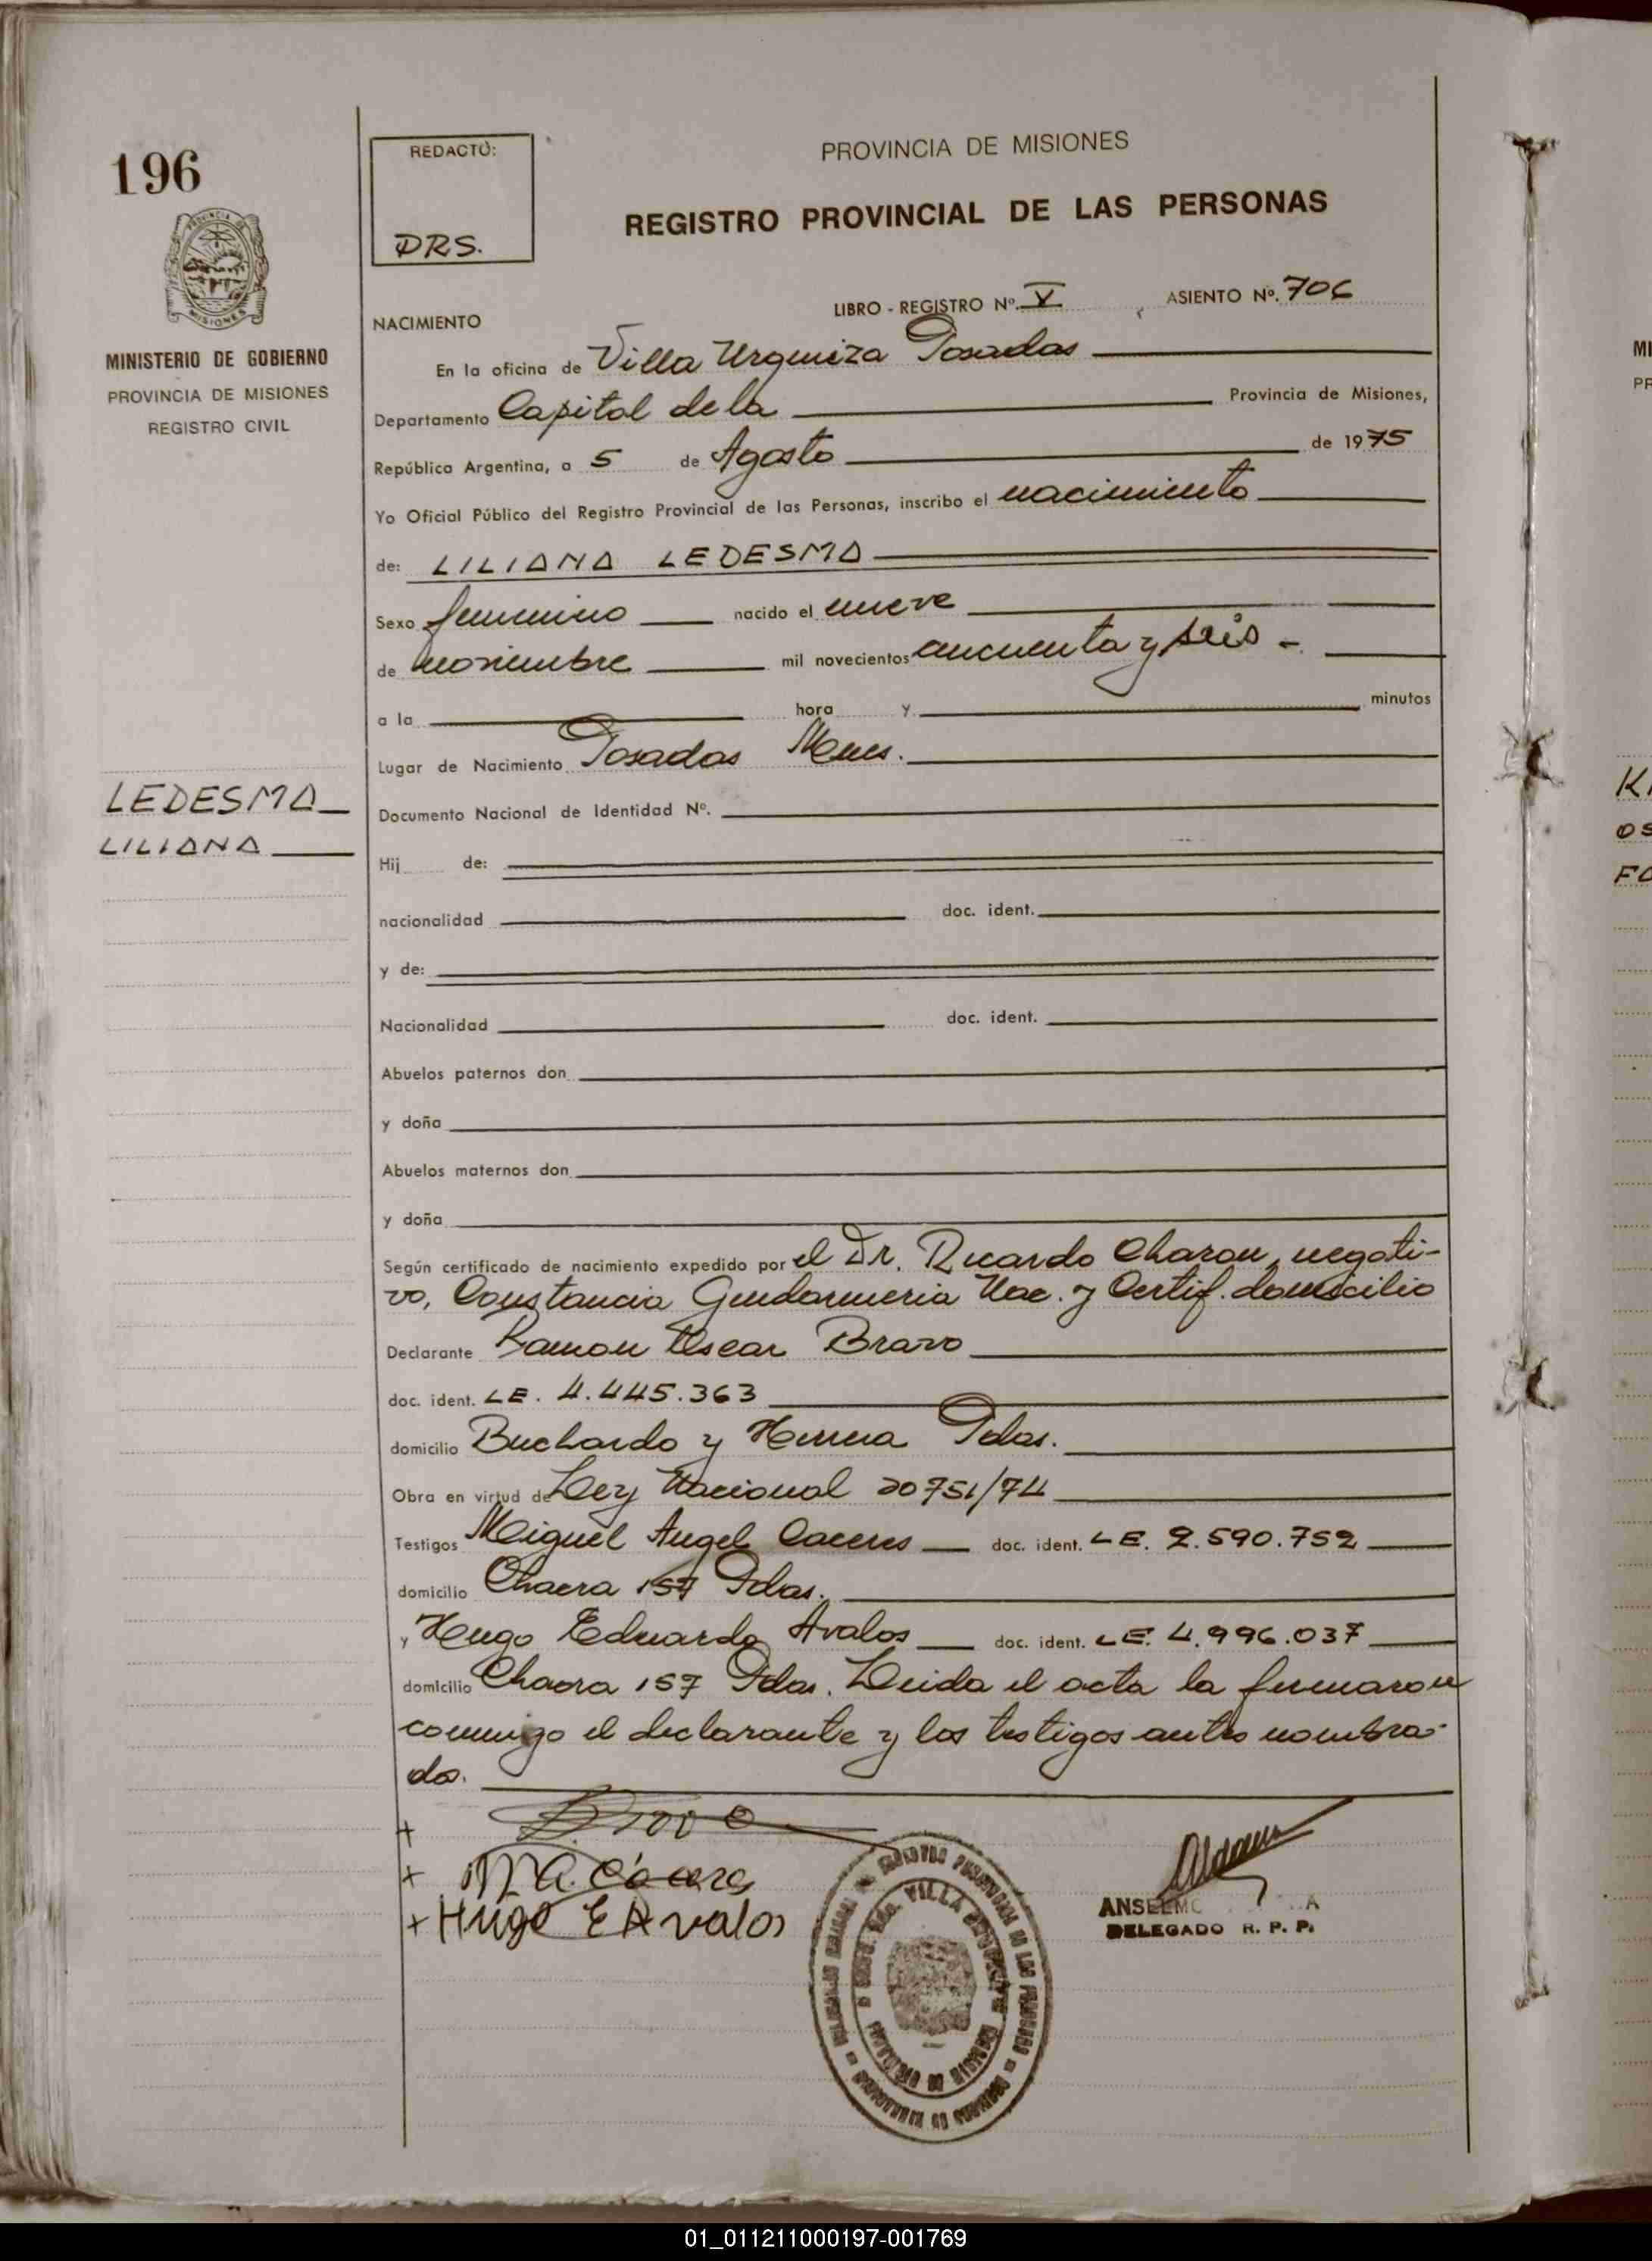 196
REDACTO:
DRS.
PROVINCIA DE MISIONES
REGISTRO PROVINCIAL DE LAS PERSONAS
PROVINCIA DE
MISIONES
MINISTERIO DE GOBIERNO
PROVINCIA DE MISIONES
REGISTRO CIVIL
LIBRO - REGISTRO Nº. V ASIENTO Nº. 706
NACIMIENTO
En la oficina de Villa Urquiza Posadas
Departamento Capital de la Provincia de Misiones,
República Argentina, a 5 de Agosto de 1975
Yo Oficial Público del Registro Provincial de las Personas, inscribo el nacimiento
de: LILIANA LEDESMA
Sexo femenino nacido el nueve
de noviembre mil novecientos cincuenta y seis -
a la hora y minutos
Lugar de Nacimiento Posadas Mnes.
LEDESMA
LILIANA
Documento Nacional de Identidad Nº.
Hij de:
nacionalidad doc. ident.
y de:
Nacionalidad doc. ident.
Abuelos paternos don
y doña
Abuelos maternos don
y doña
Según certificado de nacimiento expedido por el Dr. Ricardo Charon, negati-
vo, Constancia Gendarmeria Nac. y Certif. domicilio
Declarante Ramon Oscar Bravo
doc. ident. LE. 4.445.363
domicilio Buchardo y Herrera Pdas.
Obra en virtud de Ley Nacional 20751/74
Testigos Miguel Angel Caceres doc. ident. LE. 2.590.752
domicilio Chacra 157 Pdas.
y Hugo Eduardo Avalos doc. ident. LE. 4.996.037
domicilio Chacra 157 Pdas. Leida el acta la firmaron
conmigo el declarante y los testigos antes nombra-
dos.
+ Bravo
+ M A Cáceres
+ Hugo E Avalos
ANSELMO
DELEGADO R. P. P.
VILLA URQUIZA
PROVINCIA DE MISIONES
MI
PR
K
OS
FO
01_011211000197-001769